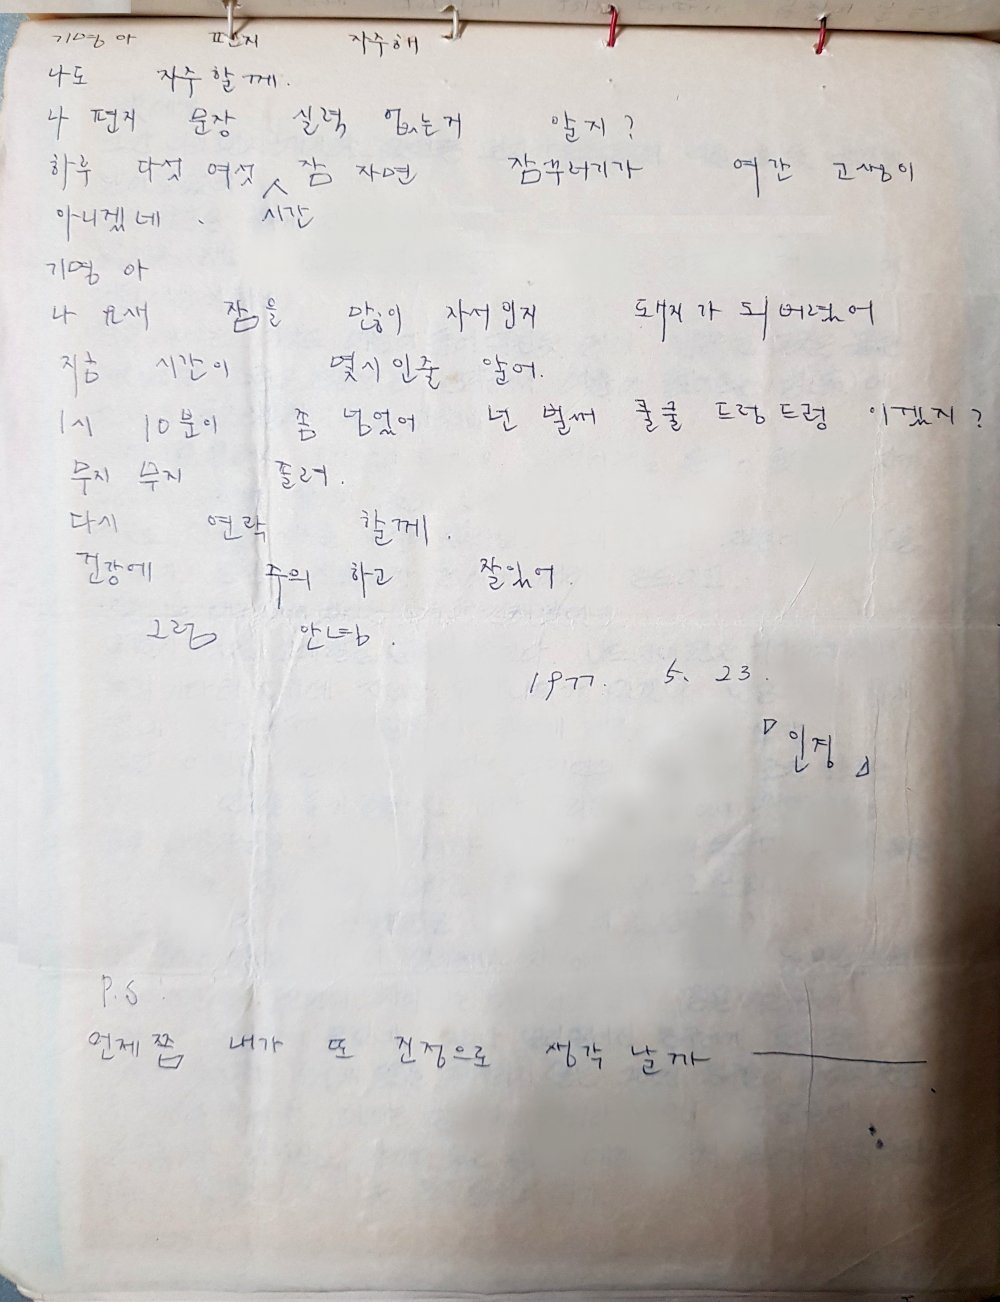 기영아 편지 자주해
나도 자주할께.
나 편지 문장 실력 없는거 알지?
하루 다섯 여섯 시간 잠 자면 잠꾸러기가 여간 고생이
아니겠네.
기영아
나 요새 잠을 많이 자서인지 돼지가 되버렸어
지금 시간이 몇시인줄 알어.
1시 10분이 좀 넘었어 넌 벌써 쿨쿨 드렁드렁 이겠지?
무지무지 졸려.
다시 연락 할께.
건강에 주의 하고 잘있어.
그럼 안녕.
1977. 5. 23.
『인정』
P.S.
언제쯤 내가 또 진정으로 생각 날까